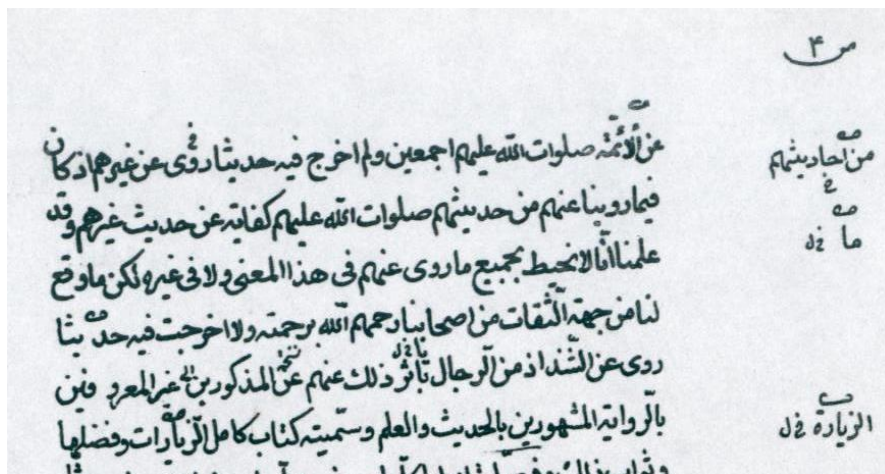 س ۴
عن الأئمّة صلوات الله عليهم اجمعين ولم اخرج فيه حديثا روى عن غيرهم اذ كان
من احاديثهم
فيما روينا عنهم من حديثهم صلوات الله عليهم كفاية عن حديث غيرهم وقد
ما خ ل
علمنا انّا لا نحيط بجميع ما روى عنهم فى هذا المعنى ولا فى غيره لكن ما وقع
لنا من جهة الثّقات من اصحابنا رحمهم الله برحمته ولا اخرجت فيه حديثا
روى عن الشّذاذ من الرّجال ذلك عنهم عن المذكورين غير المعروفين
بالرّواية المشهورين بالحديث والعلم وسمّيته كتاب كامل الزّيارات وفضلها
الزيارة خ ل